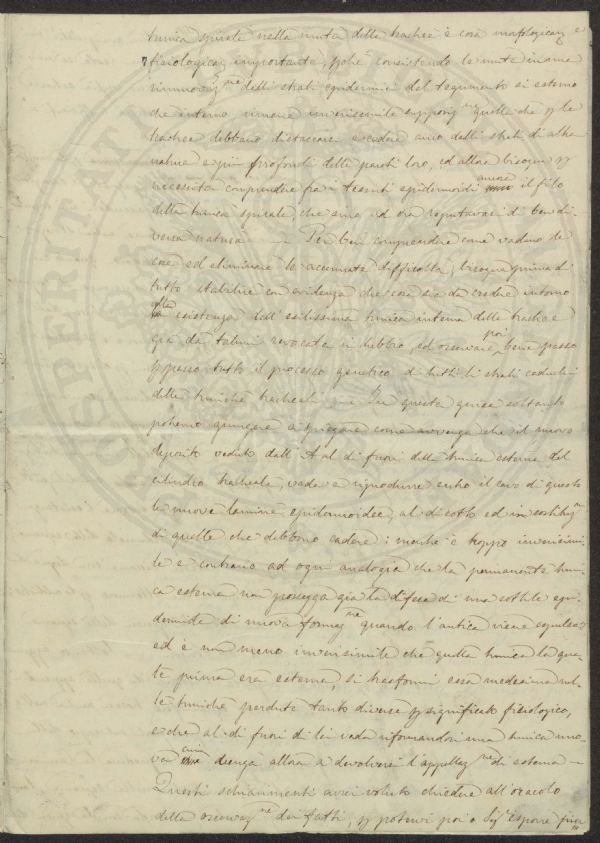 tunica spirale nella muta delle trachee è cosa
fisiologicam importante, consistendo le mute in una
rinnovaz.ne delli strati epidermici del tegumento sì esterno
che interno rimane inverisimile quelle che
trachee debbano distaccare e cadere anco delli strati di altra
natura e più profondi delle pareti loro, ed allora bisogna
necessità comprendere fra i tessuti epidermoidi ancora il filo
della tunica spirale, che sino ad ora reputavasi di ben di-
versa natura — Per ben comprendere come vadano le
cose ed eliminare le accennate difficoltà, bisogna prima di
tutto stabilire con evidenza che cosa sia da credere intorno
alla esistenza dell' esilissima tunica interna delle trachee
già da taluni revocata in dubbio, ed osservare poi bene passo
passo tutto il processo genetico di tutti li strati caduchi
delle tuniche tracheali — In questa guisa soltanto
potremo giungere a spiegare come avvenga che il nuovo
deposito veduto dall' A al di fuori della tunica esterna del
cilindro tracheale, vada a riprodurre entro il cavo di questo
le nuove lamine epidermoidee, al di sotto ed in
di quelle che debbono cadere: mentre è troppo inverisimi-
le e contrario ad ogni analogia che la permanente tuni-
ca esterna non possegga già la difesa di una sottile epi-
dermide di nuova formaz.ne quando l'antica viene espulsa;
ed è non meno inverisimile che quella tunica la qua-
le prima era esterna, si trasformi essa medesima nel-
le tuniche perdute tanto diverse significato fisiologico,
e che al di fuori di lei vada riformandosi una tunica nuo-
va cui venga allora a devolversi l'appellaz.ne di esterna —
Questi schiarimenti avrei voluto chiedere all'oracolo
della osservaz.ne dei fatti, potervi poi o Sig.ri esporre